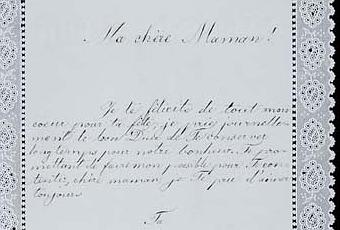 Ma chère Maman!
Je te félicite de tout mon
coeur pour ta fête je prie journelle-
ment le bon Dieu de Te conserver
longtemps pour notre bonheur. Te pro-
mettant de faire mon possible pour Te con-
tenter, chère maman, je T'prie d'aimer
toujours
Ta